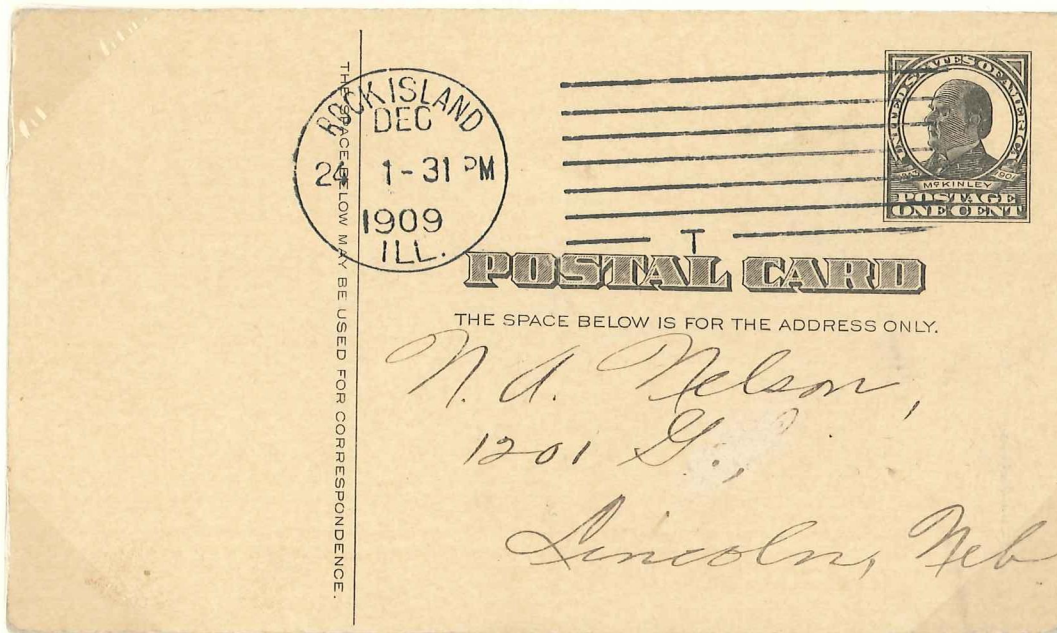 THE SPACE BELOW MAY BE USED FOR CORRESPONDENCE.
ROCK ISLAND
DEC
24 1-31 PM
1909
ILL.
T
UNITED STATES OF AMERICA
McKINLEY
POSTAGE
ONE CENT
POSTAL CARD
THE SPACE BELOW IS FOR THE ADDRESS ONLY.
N. A. Nelson,
1201 G.,
Lincoln, Neb